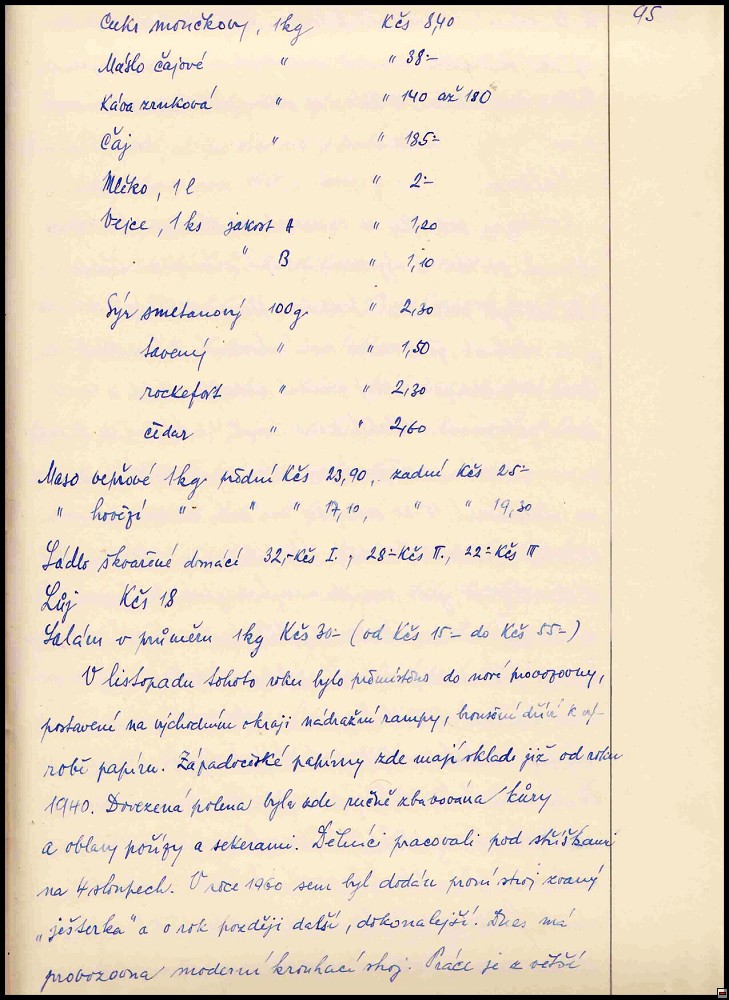 95
Cukr moučkový, 1 kg Kčs 8,40
Máslo čajové " " 38.-
Káva zrnková " " 140 až 180
Čaj " " 185.-
Mléko, 1 l " 2.-
Vejce, 1 ks jakost A " 1,20
" B " 1,10
Sýr smetanový 100 g " 2,30
tavený " " 1,50
rockefort " " 2,30
čedar " " 2,60
Maso vepřové 1 kg přední Kčs 23,90, zadní Kčs 25.-
" hovězí " " " 17,10, " " 19,30
Sádlo škvařené domácí 32,-Kčs I., 28.-Kčs II., 22.-Kčs III
Lůj Kčs 18
Salám v průměru 1kg Kčs 30.- (od Kčs 15.- do Kčs 55.-)
V listopadu tohoto roku bylo přemístěno do nové provozovny,
postavené na východním okraji nádražní rampy, broušení dříví k vý-
robě papíru. Západočeské papírny zde mají sklad již od roku
1940. Dovezená polena byla zde ručně zbavována kůry
a oblany pořízy a sekerami. Dělníci pracovali pod stříškami
na 4 sloupech. V roce 1960 sem byl dodán první stroj zvaný
"ještěrka" a o rok později další, dokonalejší. Dnes má
provozovna moderní krouhací stroj. Práce je z větší